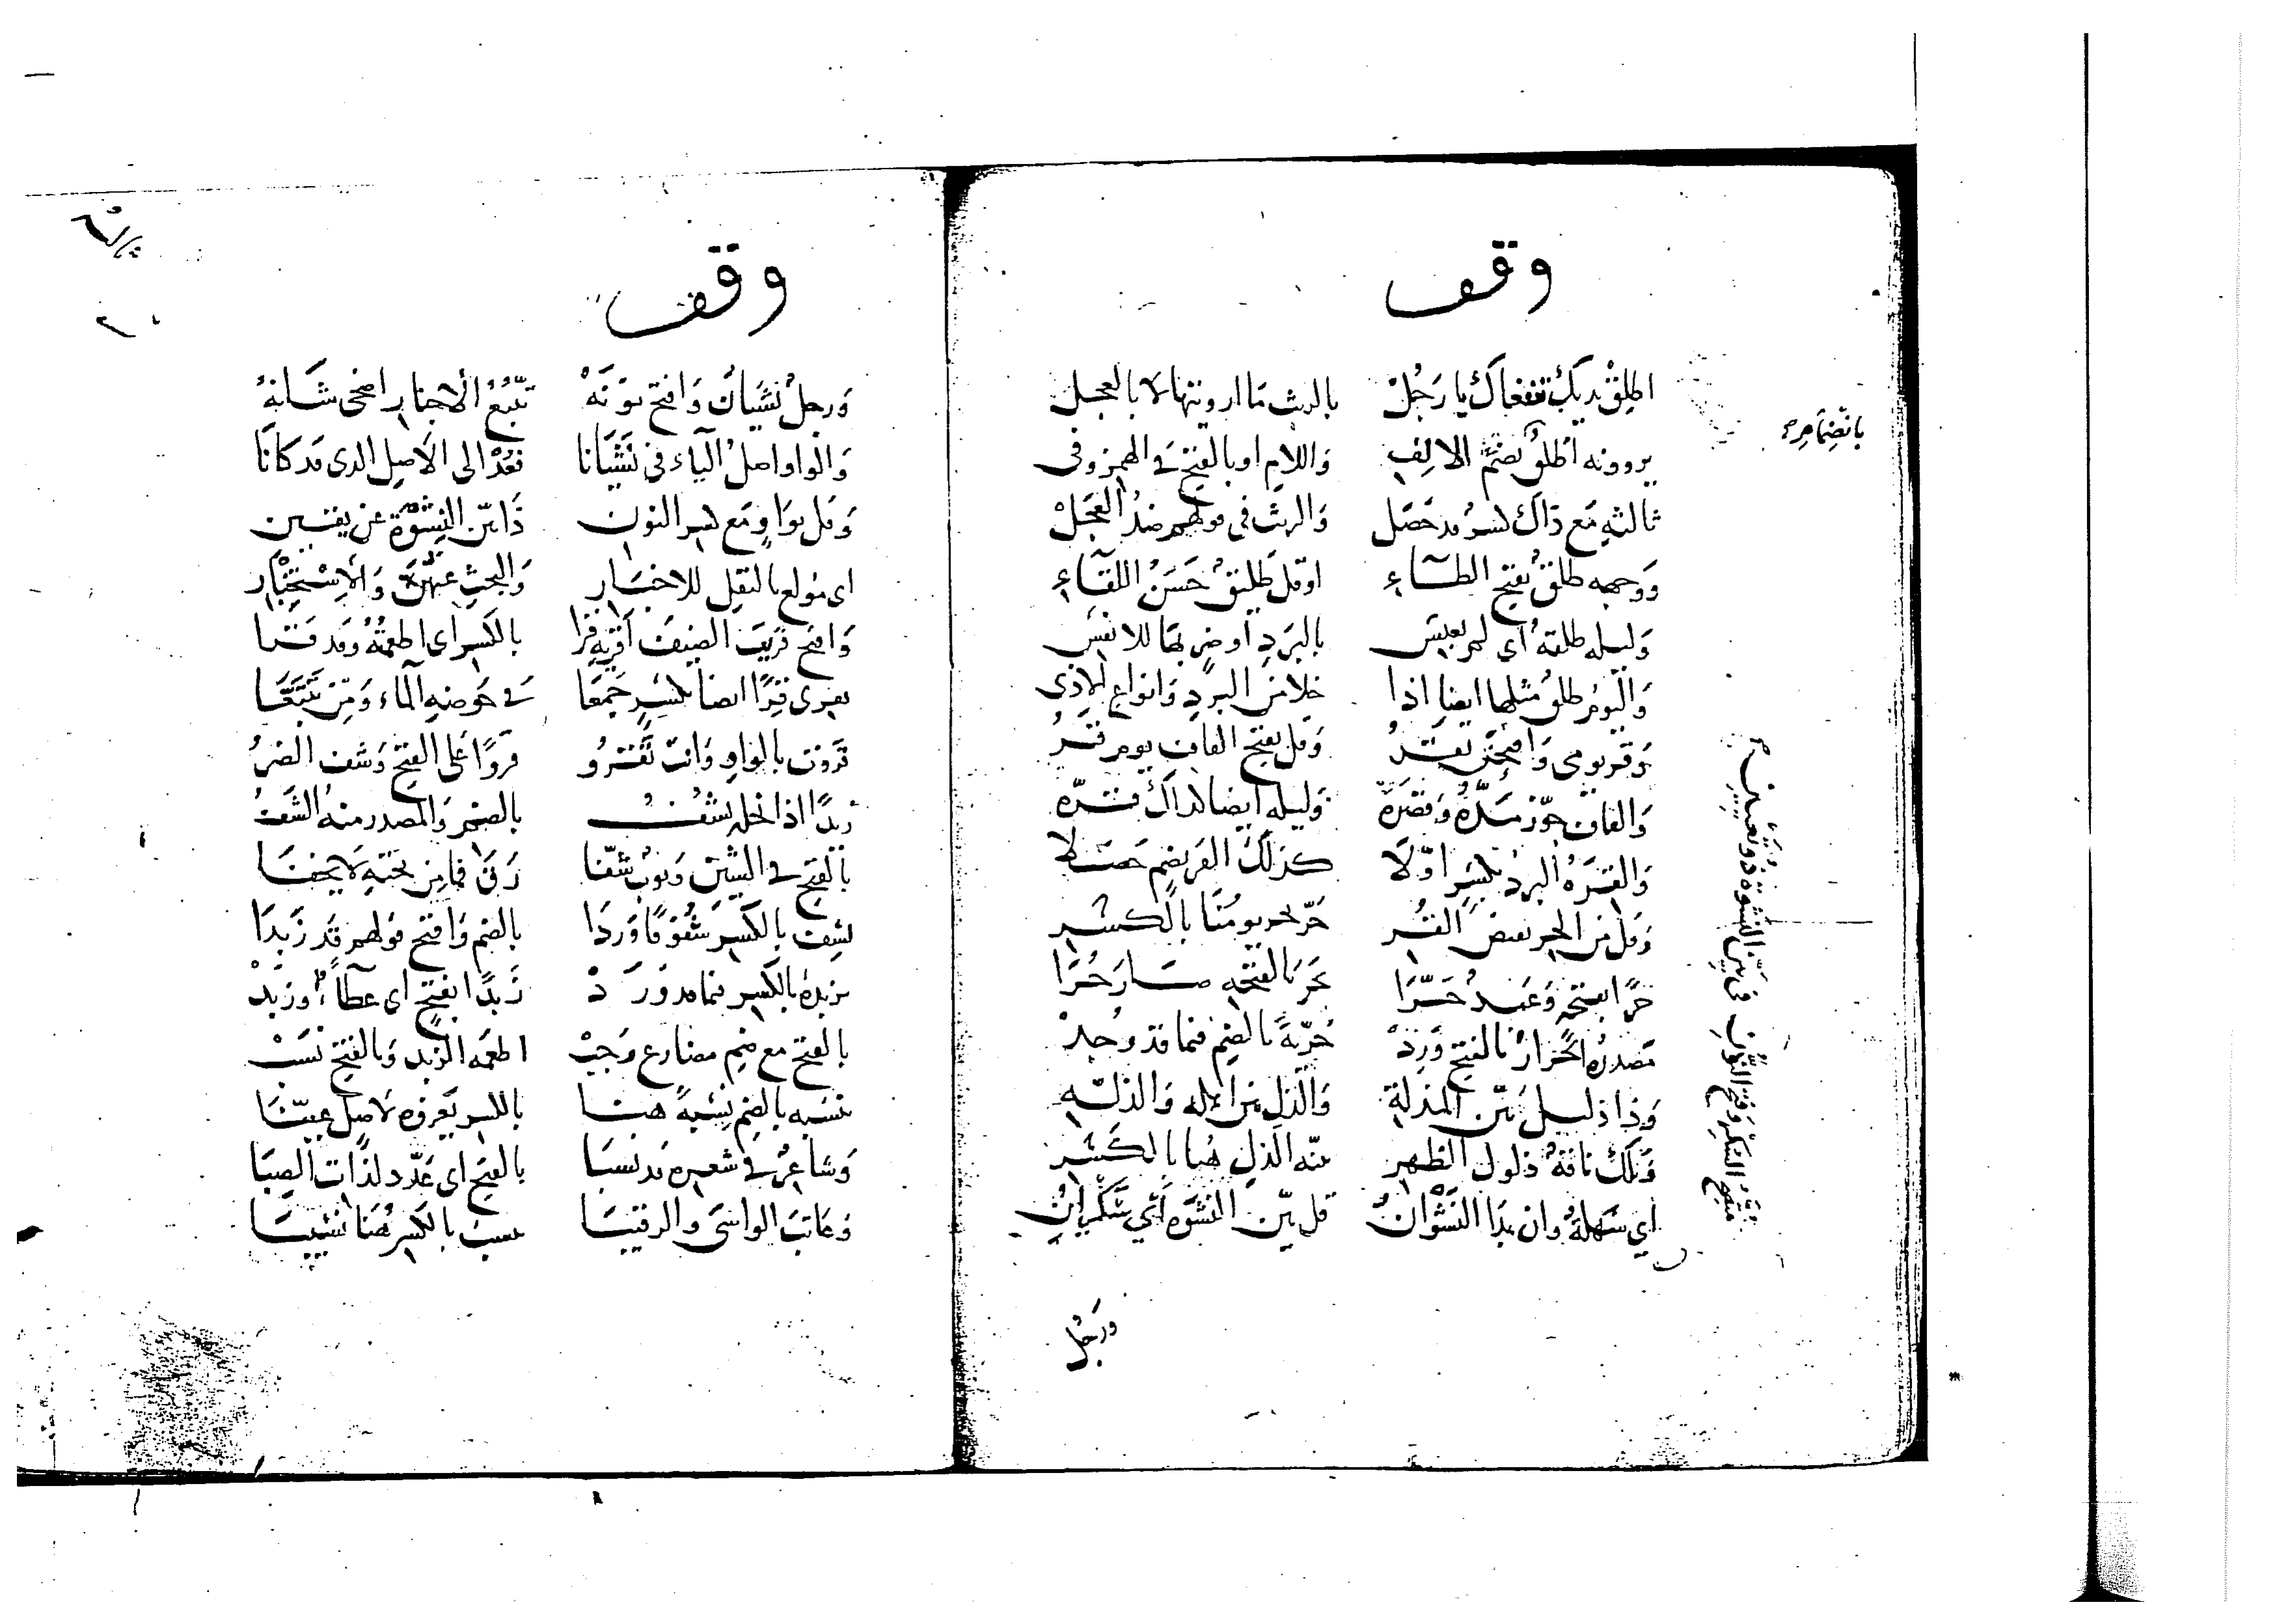 وقف
اطلِقْ يديكَ تنفعاكَ يا رَجُلْ بالريث مَا ارويتها لا بالعجل
يروونه اُطلُقْ بضَمّ الالِفِ وَاللامِ او بالفتح في الهمز وفى
ثالثهِ مَع ذاكَ كسرٌ قد حَصَل وَالريث فى قولهم ضدُ العَجَلْ
وَوجهه طلقٌ بفتح الطاءِ او قل طَليقٌ حَسَنُ اللقاءِ
وَليله طلقةٌ اى لم بالبَردِ او ضرٍ بهَا للانفسِ
وَاليومُ طلقٌ مثلها ايضا اذا خلا من البردِ وَانواع الاذى
وَقر يومى وَافتحن يقرُ وَقل بفتح القاف يوم قرُ
وَالقاف جوّز وَليله ايضا كذاك قرّه
وَالقرهُ البردُ بكسرٍ اوّلَا كذلك القر بضم حصلا
وَقل من الحر بعض القُر حَرّ يحر يومُنَا بالكسر
حَرًّا بفتحٍ وَعَبدٌ حَرّا يحَر بالفتحه صار حُرَّا
مَصدرُه الحَرارُ بالفتح وَزِدْ حُرّيةً بالضم فيما قد وُجِدْ
وَذا ذليلٌ بيّن المذلةِ وَالذلِ من اذله وَالذلّه
وَتلك ناقةٌ ذلول الظهر بينه الذل هُنا بالكسر
اي سَهلةٌ وان بَدَا النَشْوَانُ قل بيّن النشوَه أي سَكرانُ
بانضِمَامِ
في بَيّن النشوة دُونَ مَيْنِ
وَرجُل
وقف
وَرجلٌ نشيَانُ وَافتح نوْنَهْ تتبُّعُ الاخبار اضحى شَانهُ
وَالواو اصلُ الياء فى نَشيَانا فعُدْ الى الاصل الذى قد كانَا
وَقل بوَاوٍ مَع كسر النون ذَا بيّن النِشْوَة عن يقين
اى مولع بالنقل للاخبَار وَالبحثِ عنهن وَالاِسْتخبَار
وَافتح قريت الضيف اَقريهِ قرا بالكسر اى اطعمتُهُ
يقرى قِرًا ايضا بكسرٍ جَمَعَا في حَوضهِ الماء وَمن تَتَبَّعَا
قَروَت بالواوِ وَانت تَقرُو قروًا عَلى الفتح وَشف الضرُ
زيدًا اذا انحله يشُفُ بالضم وَالمصدر منهُ الشَفُ
بالفتح في الشين وَثوبٌ شفّا رَقَ فما من تحتهِ لَا يخفَا
يشِف بالكسر شُفوفًا وَرَدَا بالضم وَافتح قولهم قد زَبَدَا
يزبدهُ بالكسر فيما قد وَرَدْ زَبدًا بفتحٍ اى عطَاءً وَزبَدْ
بالفتح مع ضم مضارع وَجَبْ اطعمَه الزبد وَبالفتح نسَبْ
ينسُبه بالضم نِسْبةً هنَا بالكسر يَعزوه لاصلٍ عيّنَا
وَشاعرٌ في شعرهِ قد نسَبَا بالفتح اى عَدّد لذّات الصِبَا
وَعَاتبَ الواشىَ والرقيبَا ينسب بالكسر هُنَا نسيبَا